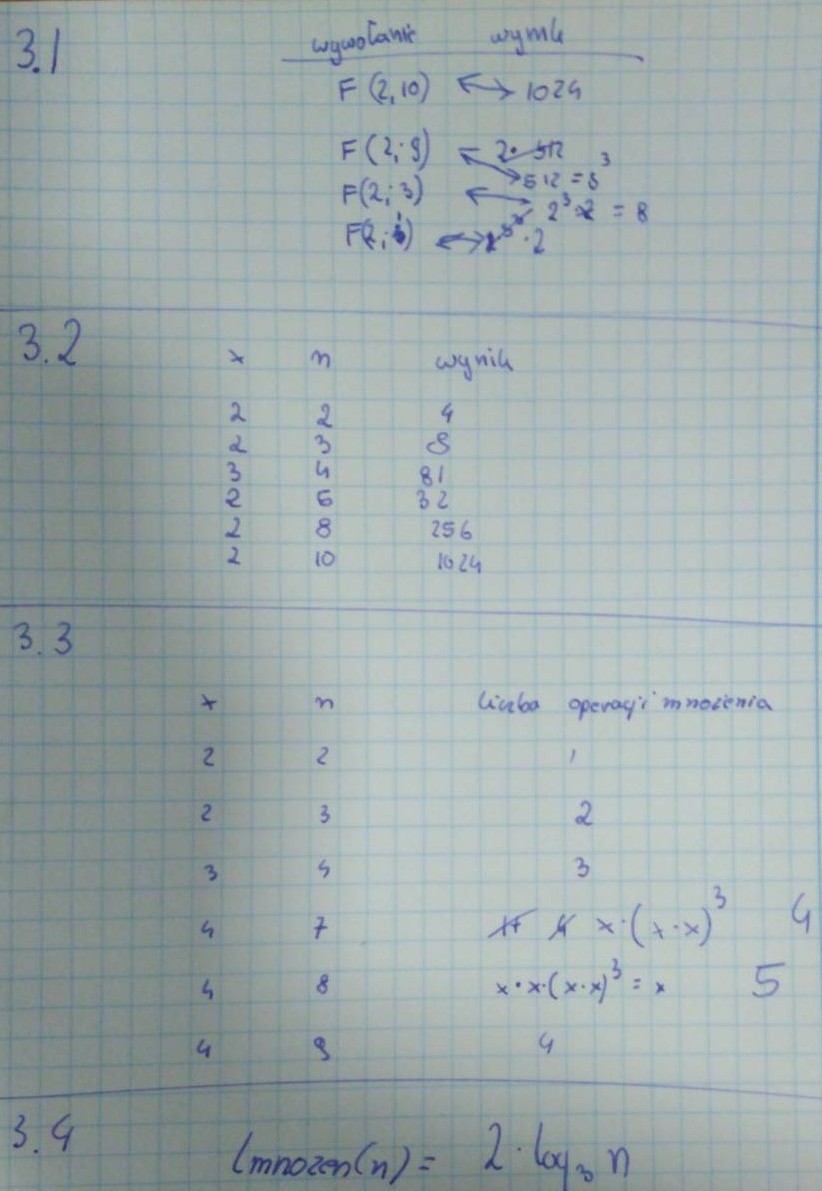 3.1
wywołanie wynik
F(2,10) ↔ 1024
F(2;9) – 2·512
512 = 8³
F(2;3) ↔ 2³ = 8
F(2;1) ↔ · 2
3.2
x n wynik
2 2 4
2 3 8
3 4 81
2 5 32
2 8 256
2 10 1024
3.3
x n liczba operacji mnożenia
2 2 1
2 3 2
3 4 3
4 7 x·(x·x)³ 4
4 8 x·x·(x·x)³ = x 5
4 9 4
3.4
lmnozen(n) = 2·log₃ n